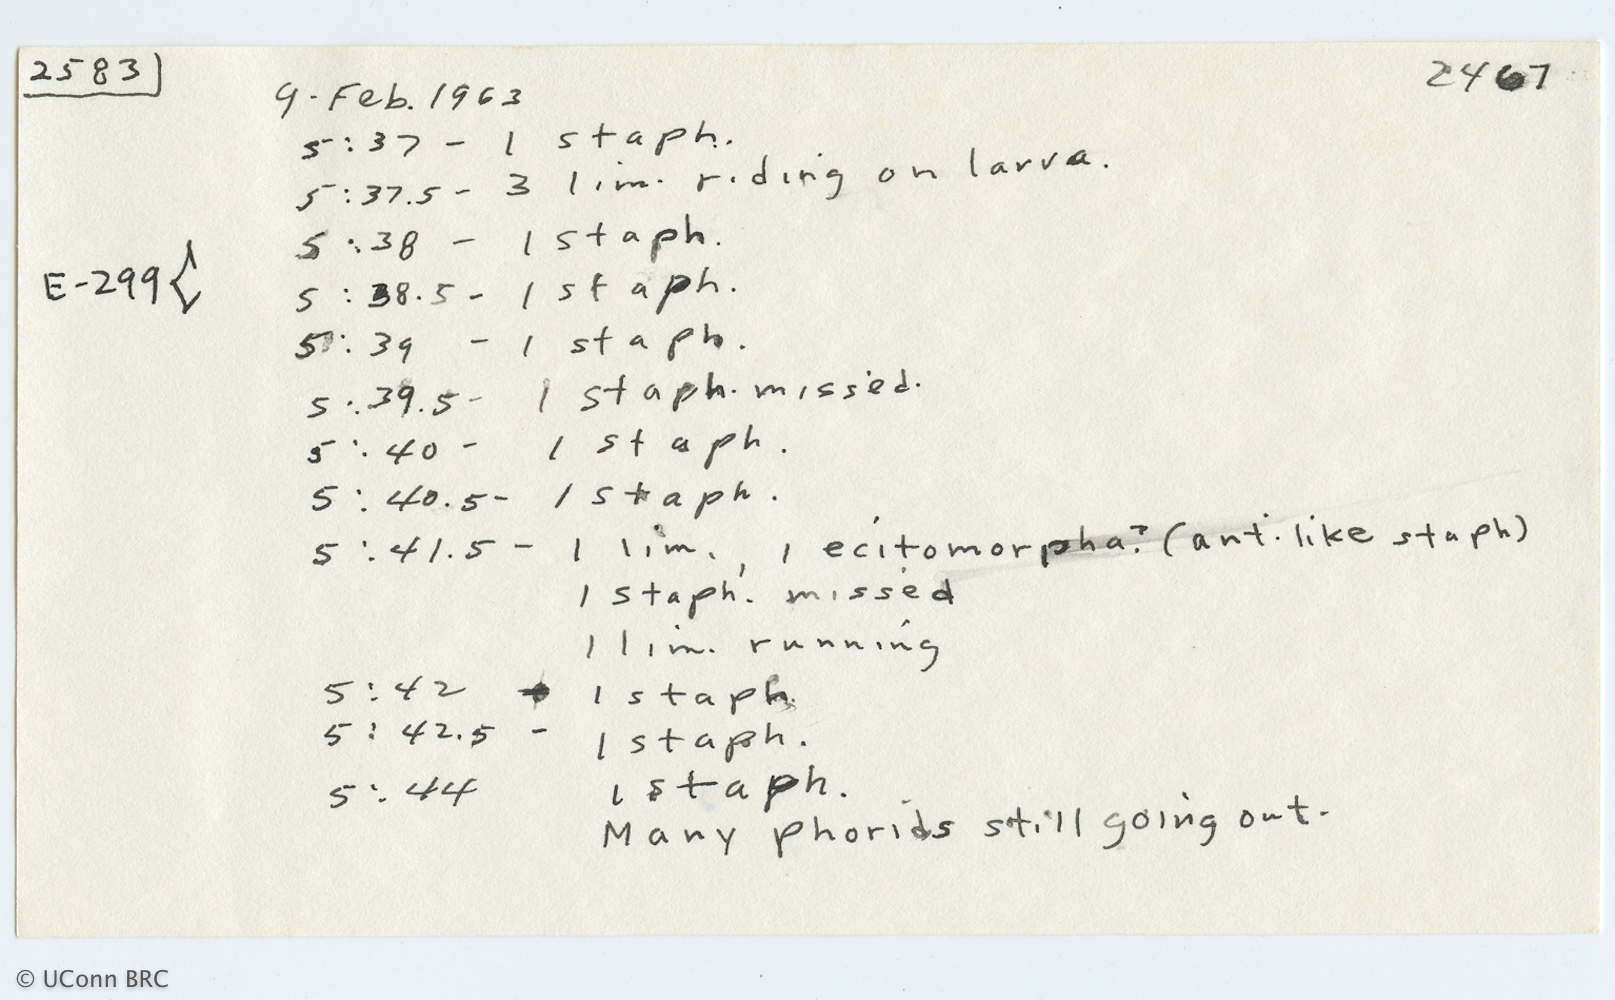 2583
2467
9. Feb. 1963
5:37 - 1 staph.
5:37.5 - 3 lim. riding on larva.
5:38 - 1 staph.
E-299 {
5:38.5 - 1 staph.
5:39 - 1 staph.
5:39.5 - 1 staph. missed.
5:40 - 1 staph.
5:40.5 - 1 staph.
5:41.5 - 1 lim., 1 ecitomorpha? (ant-like staph)
1 staph. missed
1 lim. running
5:42 - 1 staph.
5:42.5 - 1 staph.
5:44 1 staph.
Many phorids still going out.
© UConn BRC